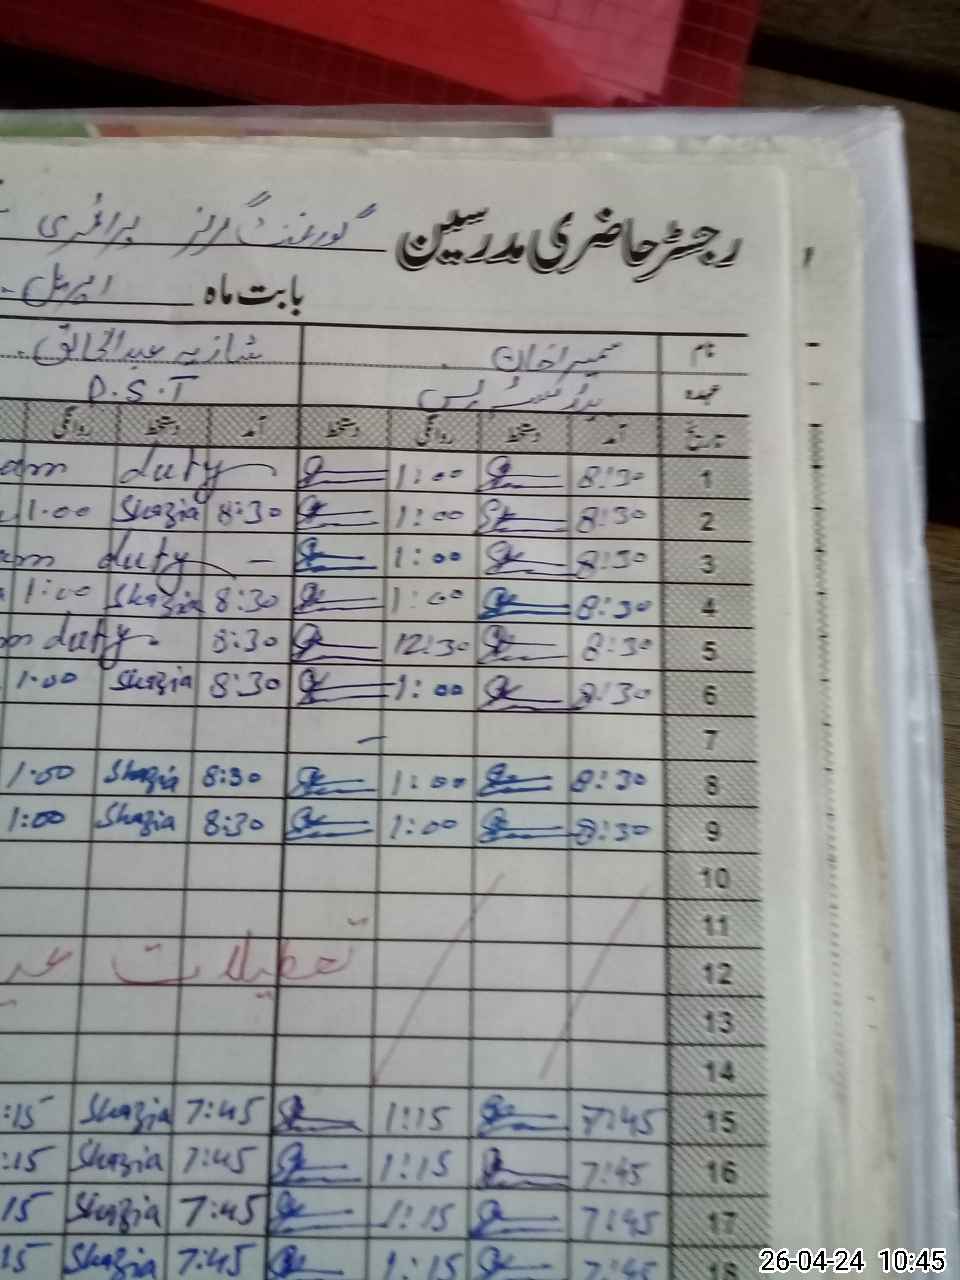 رجسٹر حاضری مدرسین گورنمنٹ گرلز پرائمری
بابت ماہ اپریل
نام سمیرا خان شازیہ عبدالخالق
عہدہ P.S.T
تاریخ آمد دستخط روانگی دستخط آمد دستخط روانگی
1 8:30 1:00 duty
2 8:30 1:00 8:30 Shazia 1:00
3 8:30 1:00 – duty
4 8:30 1:00 8:30 Shazia 1:00
5 8:30 12:30 8:30 duty
6 8:30 1:00 8:30 Shazia 1:00
7 –
8 8:30 1:00 8:30 Shazia 1:00
9 8:30 1:00 8:30 Shazia 1:00
10
11
12 تعطیلات عید
13
14
15 7:45 1:15 7:45 Shazia :15
16 7:45 1:15 7:45 Shazia :15
17 7:45 1:15 7:45 Shazia 15
18 7:45 1:15 7:45 Shazia 15
26-04-24 10:45